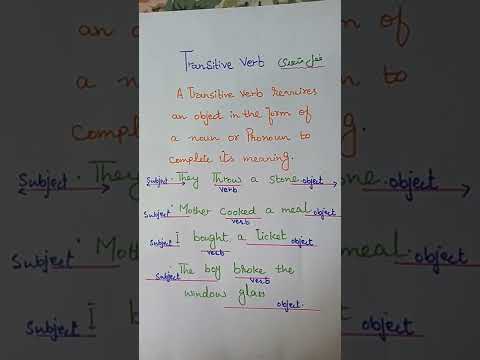 Transitive Verb فعل متعدی
A Transitive verb requires
an object in the form of
a noun or Pronoun to
complete its meaning.
Subject • They Throw a Stone object
verb
Subject • Mother Cooked a meal object
verb
Subject I bought a Ticket object
verb
Subject The boy broke the
verb
window glass
object.